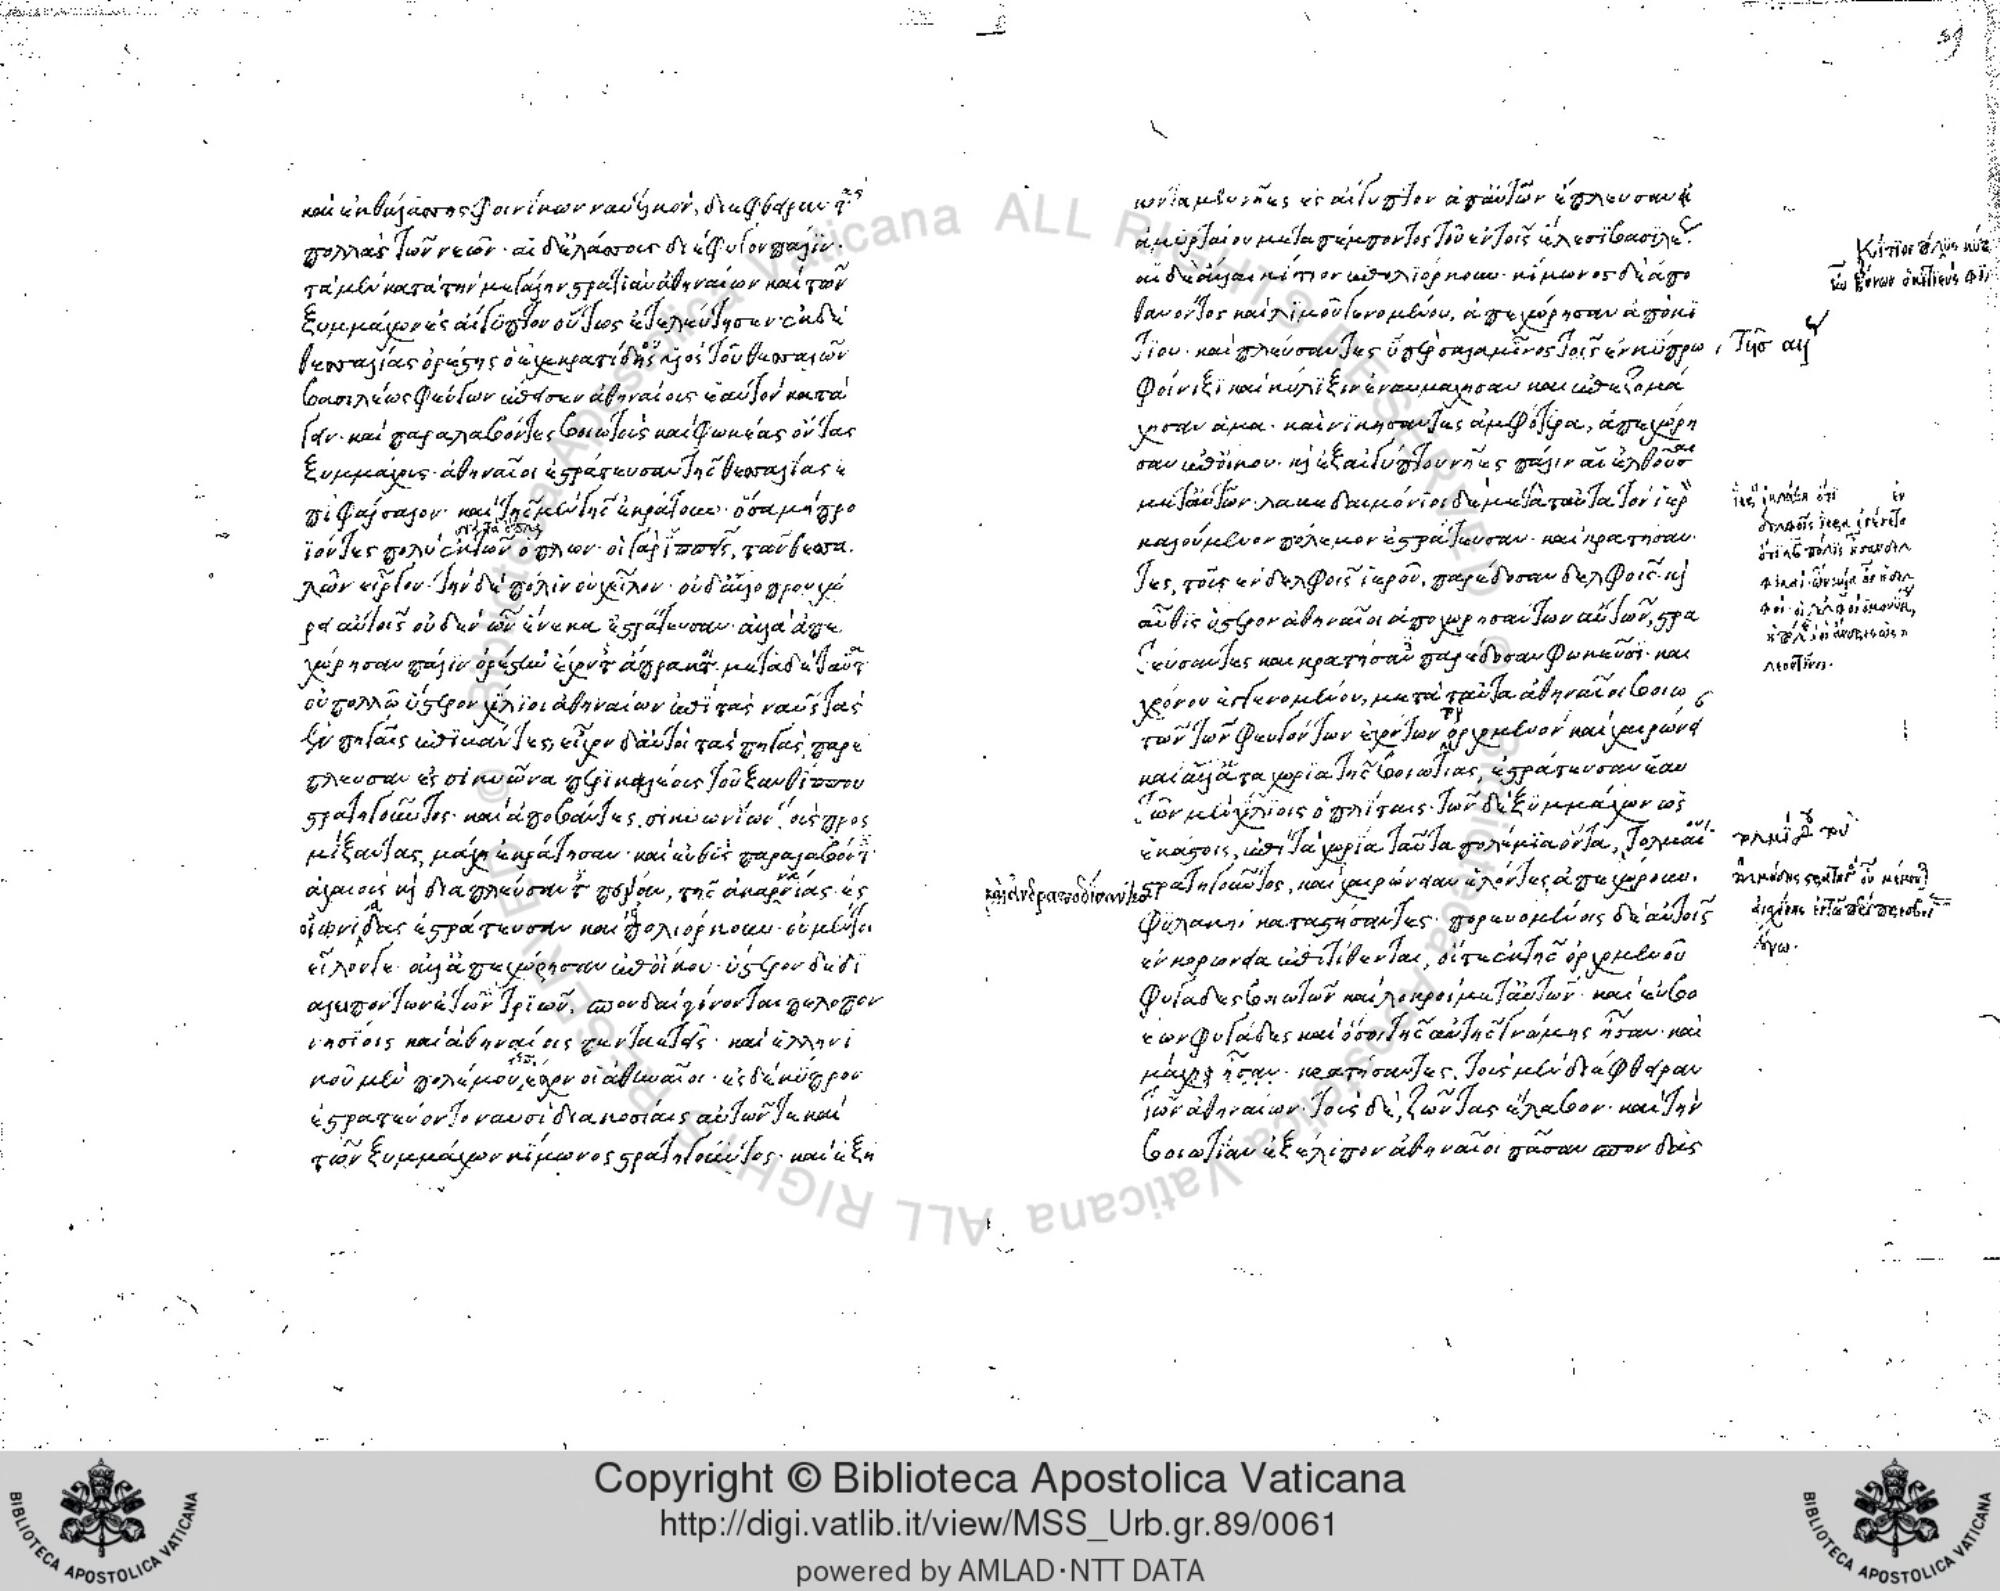 καὶ ἐκ θαλάσσης φοινίκων ναυτικὸν, διέφθειραν τὰς
πολλὰς τῶν νεῶν· αἱ δ' ἐλάσσους διέφυγον πάλιν·
τὰ μὲν κατὰ τὴν μεγάλην στρατιὰν ἀθηναίων καὶ τῶν
ξυμμάχων ἐς αἴγυπτον οὕτως ἐτελεύτησεν· ἐκ δὲ
θεσσαλίας ὀρέστης ὁ ἐχεκρατίδου υἱὸς τοῦ θεσσαλῶν
βασιλέως φεύγων ἔπεισεν ἀθηναίους ἑαυτὸν κατά
γειν· καὶ παραλαβόντες βοιωτοὺς καὶ φωκέας ὄντας
ξυμμάχους· ἀθηναῖοι ἐστράτευσαν τῆς θεσσαλίας ἐ
πὶ φάρσαλον· καὶ τῆς μὲν γῆς ἐκράτουν· ὅσα μὴ προ
ϊόντες πολὺ ἐκ τῶν ὅπλων· οἱ γὰρ ἱππῆς, τῶν θεσσα
λῶν εἶργον· τὴν δὲ πόλιν οὐχ εἷλον· οὐδ' ἄλλο προυχώ
ρει αὐτοῖς οὐδὲν ὧν ἕνεκα ἐστράτευσαν· ἀλλ' ἀπε
χώρησαν πάλιν ὀρέστην ἔχοντες ἄπρακτοι· μετὰ δὲ ταῦτα
οὐ πολλῶ ὕστερον χίλιοι ἀθηναίων ἐπὶ τὰς ναῦς τὰς
ἐν πηγαῖς ἐπιβάντες, εἶχον δ' αὐτοὶ τὰς πηγὰς, παρέ
πλευσαν ἐς σικυῶνα περικλέους τοῦ ξανθίππου
στρατηγοῦντος· καὶ ἀποβάντες, σικυωνίων τοὺς προς
μίξαντας, μάχη ἐκράτησαν· καὶ εὐθὺς παραλαβόντες
ἀχαιοὺς καὶ διαπλεύσαντες πέραν, τῆς ἀκαρνανίας· ἐς
οἰνιάδας ἐστράτευσαν καὶ ἐπολιόρκουν· οὐ μέντοι
εἷλόν γε· ἀλλ' ἀπεχώρησαν ἐπ' οἴκου· ὕστερον δὲ δι
αλιπόντων ἐτῶν τριῶν, σπονδαὶ γίνονται πελοπον
νησίοις καὶ ἀθηναίοις πενταετεῖς· καὶ ἑλληνι
κοῦ μὲν πολέμου ἔσχον οἱ ἀθηναῖοι· ἐς δὲ κύπρον
ἐστρατεύοντο ναυσὶ διακοσίαις αὐτῶν τε καὶ
τῶν ξυμμάχων κίμωνος στρατηγοῦντος· καὶ ἑξή
κοντα μὲν νῆες ἐς αἴγυπτον ἀπ' αὐτῶν ἔπλευσαν
ἀμυρταίου μεταπέμποντος τοῦ ἐν τοῖς ἕλεσι βασιλέως·
αἱ δὲ ἄλλαι κίτιον ἐπολιόρκουν· κίμωνος δὲ ἀπο
θανόντος καὶ λιμοῦ γενομένου, ἀπεχώρησαν ἀπὸ κι
τίου· καὶ πλεύσαντες ὑπὲρ σαλαμῖνος τῆς ἐν κύπρω
φοίνιξι καὶ κίλιξιν ἐναυμάχησαν καὶ ἐπεζομά
χησαν ἅμα· καὶ νικήσαντες ἀμφότερα, ἀπεχώρη
σαν ἐπ' οἴκου· καὶ αἱ ἐξ αἰγύπτου νῆες πάλιν αἱ ἐλθοῦσαι
μετ' αὐτῶν· λακεδαιμόνιοι δὲ μετὰ ταῦτα τὸν ἱερὸν
καλούμενον πόλεμον ἐστράτευσαν· καὶ κρατήσαν
τες, τοῦ ἐν δελφοῖς ἱεροῦ, παρέδοσαν δελφοῖς· καὶ
αὖθις ὕστερον ἀθηναῖοι ἀποχωρησάντων αὐτῶν, στρα
τεύσαντες καὶ κρατήσαντες παρέδοσαν φωκεῦσι· καὶ
χρόνου ἐγγενομένου, μετὰ ταῦτα ἀθηναῖοι βοιω
τῶν τῶν φευγόντων ἐχόντων ὀρχομενὸν καὶ χαιρώνεια
καὶ ἄλλ' ἄττα χωρία τῆς βοιωτίας, ἐστράτευσαν ἑαυ
τῶν μὲν χιλίοις ὁπλίταις· τῶν δὲ ξυμμάχων ὡς
ἑκάστοις, ἐπὶ τὰ χωρία ταῦτα πολέμια ὄντα, τολμαίου
στρατηγοῦντος, καὶ χαιρώνειαν ἑλόντες ἀπεχώρουν,
καὶ ἀνδραποδίσαντες
φυλακὴν καταστήσαντες· πορευομένοις δὲ αὐτοῖς
ἐν κορωνεία ἐπιτίθενται, οἵ τε ἐκ τῆς ὀρχομενοῦ
φυγάδες βοιωτῶν καὶ λοκροὶ μετ' αὐτῶν· καὶ εὐβο
έων φυγάδες καὶ ὅσοι τῆς αὐτῆς γνώμης ἦσαν· καὶ
μάχη κρατήσαντες, τοὺς μὲν διέφθειραν
τῶν ἀθηναίων· τοὺς δὲ, ζῶντας ἔλαβον· καὶ τὴν
βοιωτίαν ἐξέλιπον ἀθηναῖοι πᾶσαν σπονδὰς
Copyright © Biblioteca Apostolica Vaticana
http://digi.vatlib.it/view/MSS_Urb.gr.89/0061
powered by AMLAD·NTT DATA
BIBLIOTECA APOSTOLICA VATICANA
BIBLIOTECA APOSTOLICA VATICANA